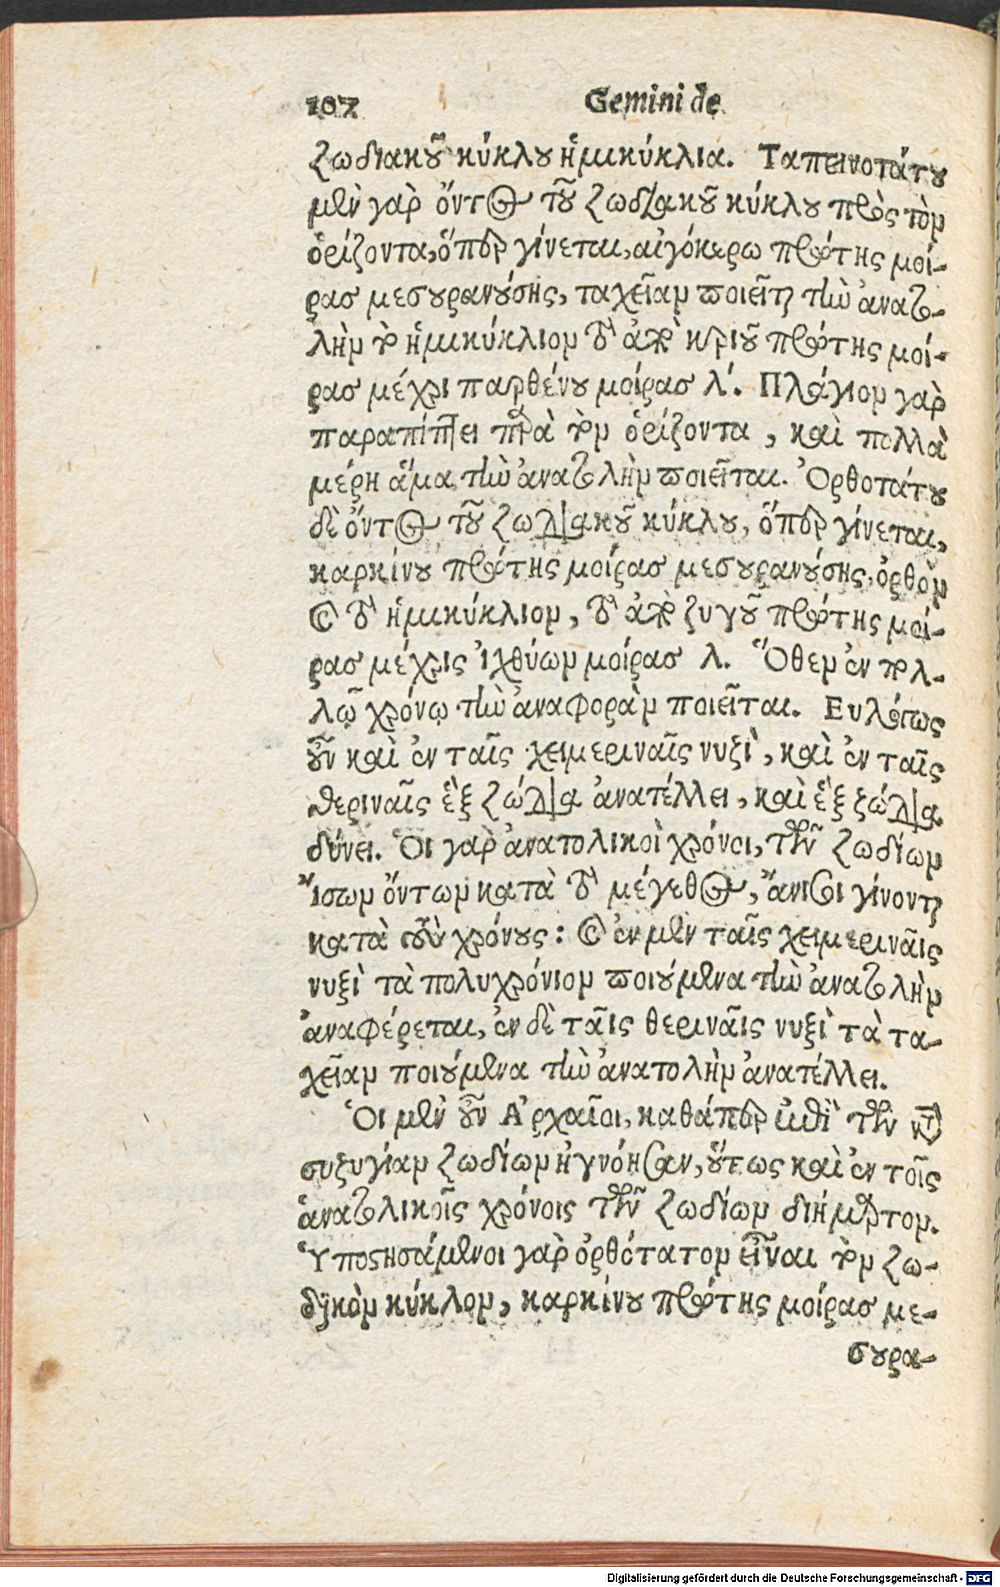 102 Gemini de
ζωδιακοῦ κύκλου ἡμικύκλια. Ταπεινοτάτου
μὲν γὰρ ὄντος τοῦ ζωδιακοῦ κύκλου πρὸς τὸν
ὁρίζοντα, ὅπερ γίνεται, αἰγόκερω πρώτης μοί-
ρας μεσουρανούσης, ταχεῖαν ποιεῖται τὴν ἀνατο-
λὴν τὸ ἡμικύκλιον τὸ ἀπὸ κριοῦ πρώτης μοί-
ρας μέχρι παρθένου μοίρας λ΄. Πλάγιον γὰρ
παραπίπτει παρὰ τὸν ὁρίζοντα, καὶ πολλὰ
μέρη ἅμα τὴν ἀνατολὴν ποιεῖται. Ὀρθοτάτου
δὲ ὄντος τοῦ ζωδιακοῦ κύκλου, ὅπερ γίνεται,
καρκίνου πρώτης μοίρας μεσουρανούσης, ὀρθὸν
καὶ τὸ ἡμικύκλιον, τὸ ἀπὸ ζυγοῦ πρώτης μοί-
ρας μέχρις ἰχθύων μοίρας λ. Ὅθεν ἐν πολ-
λῷ χρόνῳ τὴν ἀναφορὰν ποιεῖται. Ευλόγως
οὖν καὶ ἐν ταῖς χειμεριναῖς νυξὶ, καὶ ἐν ταῖς
θεριναῖς ἓξ ζώδια ἀνατέλλει, καὶ ἓξ ζώδια
δύνει. Ὁι γὰρ ἀνατολικοὶ χρόνοι, τῶν ζωδίων
ἴσων ὄντων κατὰ τὸ μέγεθος, ἄνισοι γίνονται
κατὰ τοὺς χρόνους: καὶ ἐν μὲν ταῖς χειμεριναῖς
νυξὶ τὰ πολυχρόνιον ποιούμενα τὴν ἀνατολὴν
ἀναφέρεται, ἐν δὲ ταῖς θεριναῖς νυξὶ τὰ τα-
χεῖαν ποιούμενα τὴν ἀνατολὴν ἀνατέλλει.
Ὁι μὲν οὖν Ἀρχαῖοι, καθάπερ ἐπὶ τῶν κατὰ
συζυγίαν ζωδίων ἠγνόησαν, οὕτως καὶ ἐν τοῖς
ἀνατολικοῖς χρόνοις τῶν ζωδίων διήμαρτον.
Ὑποστησάμενοι γὰρ ὀρθότατον εἶναι τὸν ζω-
διακὸν κύκλον, καρκίνου πρώτης μοίρας με-
σουρα-
Digitalisierung gefördert durch die Deutsche Forschungsgemeinschaft - DFG